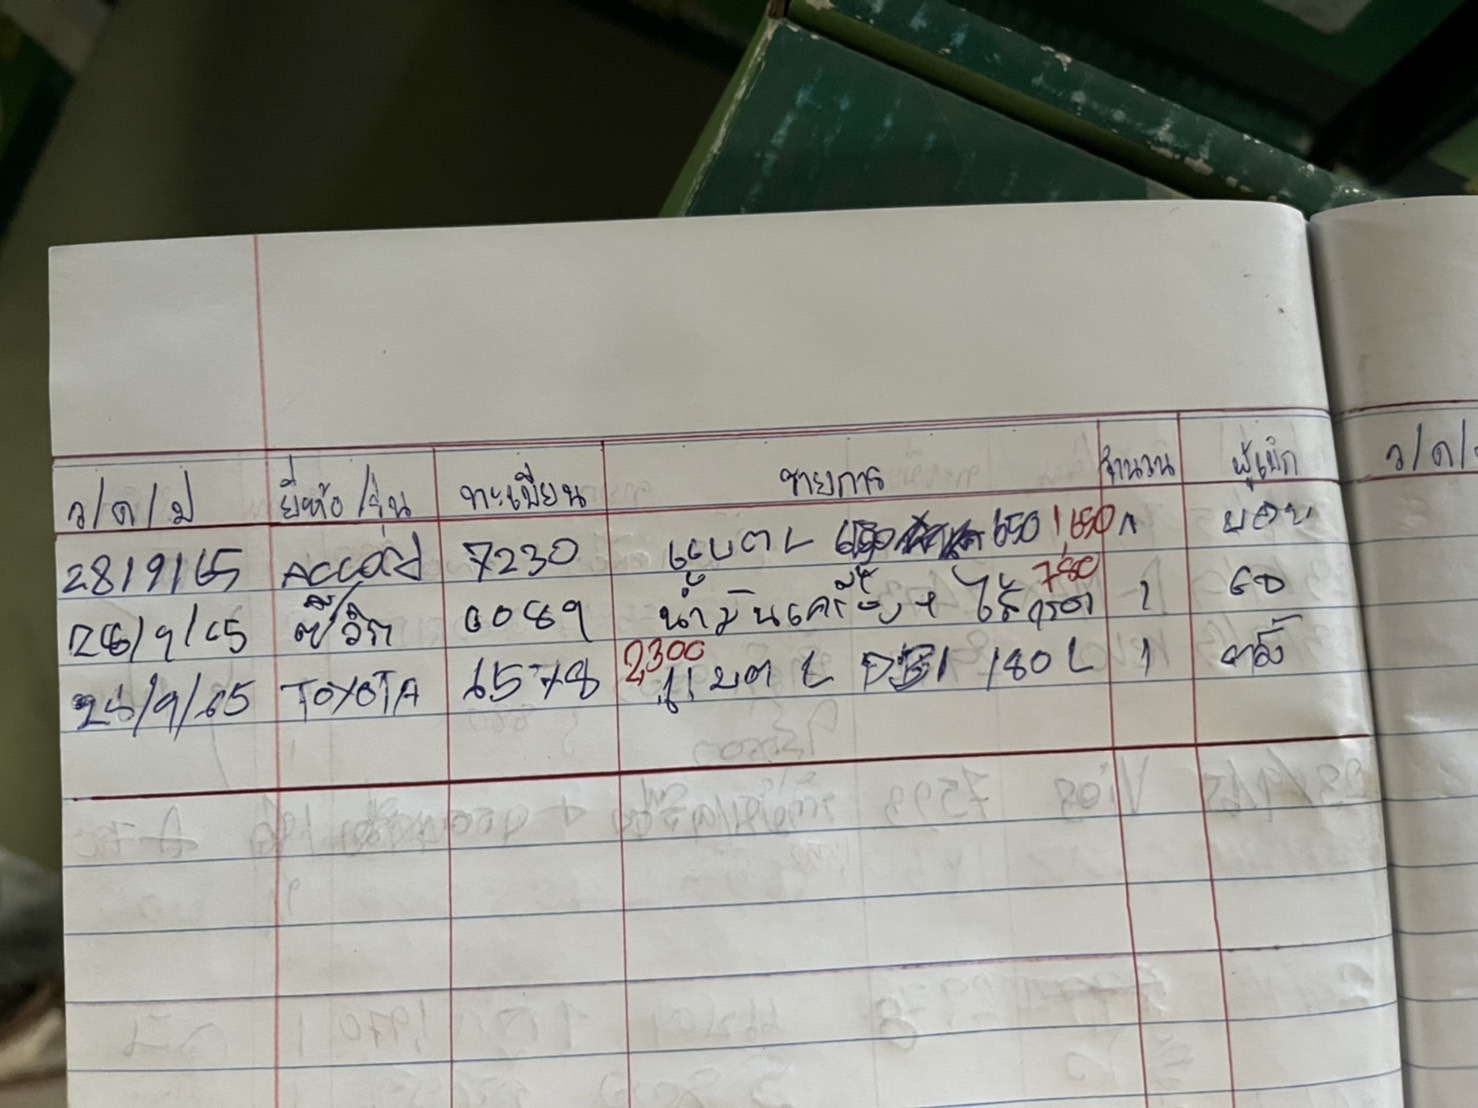 ว/ด/ป ยี่ห้อ/รุ่น ทะเบียน รายการ จำนวน ผู้เบิก ว/ด/
28/9/65 Accord 7230 แบต L 650 1,650 1 บอย
28/9/65 ซีวิค 6089 น้ำมันเครื่อง + ไส้กรอง 780 1
28/9/65 TOYOTA 6578 2,300 แบต L DIN 180 L 1